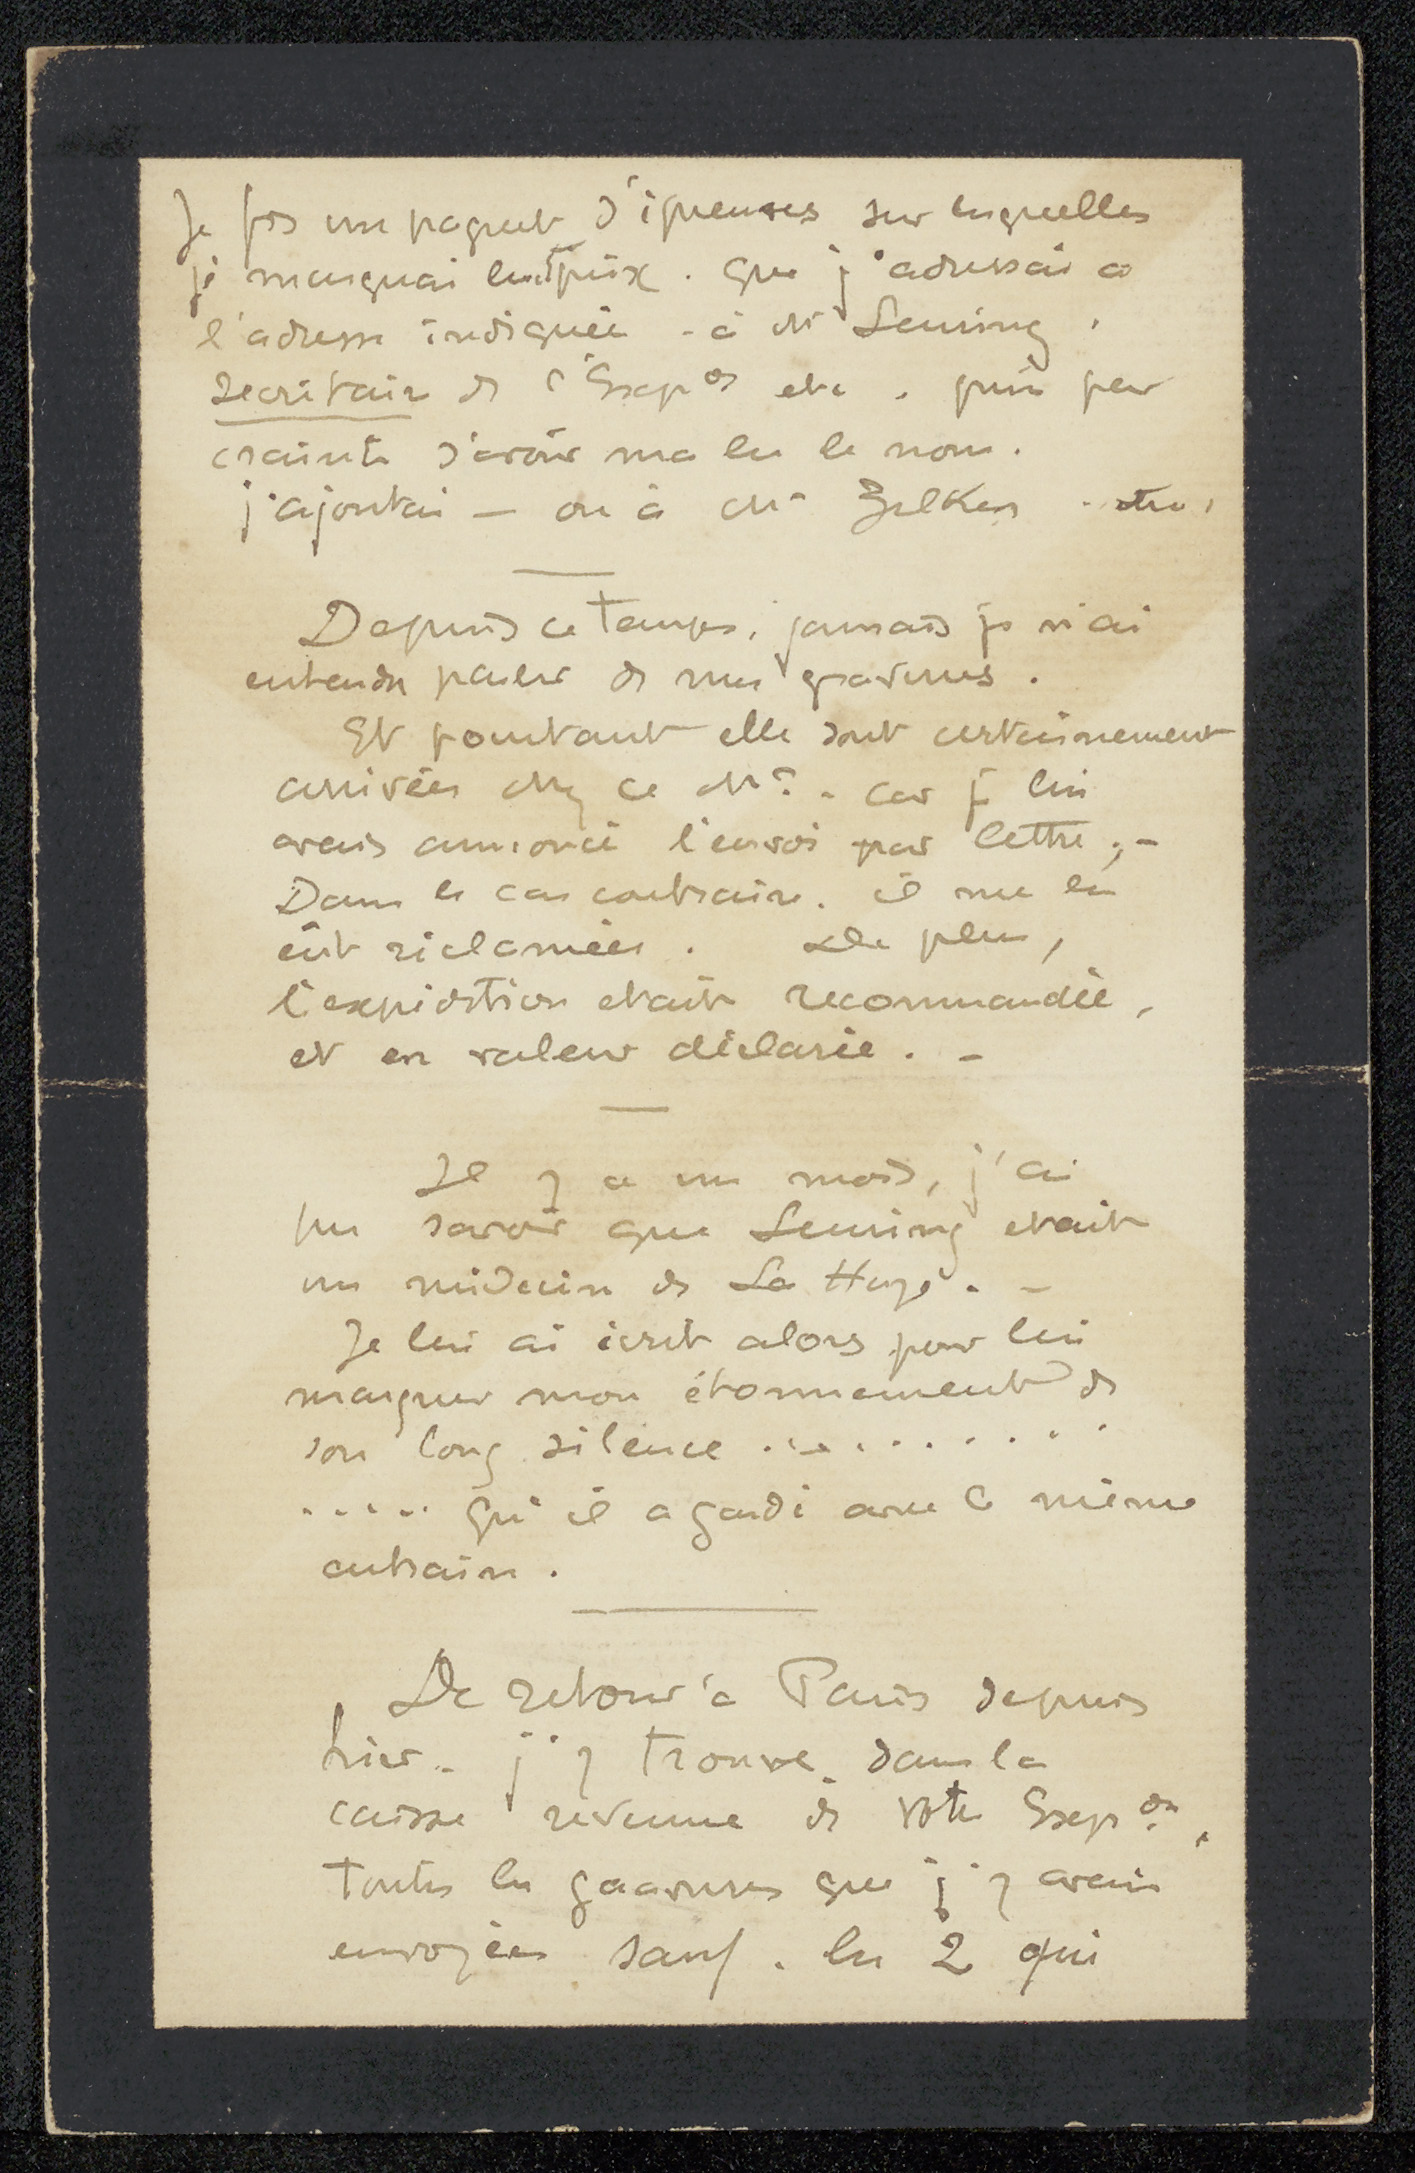 Je fis un paquet d'épreuves sur lesquelles
je marquai les prix. que j'adressai a
l'adresse indiquée - à Mr Leuring,
secrétaire de l'Expon etc. puis par
crainte d'avoir mal lu le nom.
j'ajoutai — ou à Mr Zilken . etc.
Depuis ce temps, jamais je n'ai
entendu parler de mes gravures.
Et pourtant elle sont certainement
arrivées chez ce Mr. - car je lui
avais annoncé l'envoi par lettre ; -
Dans le cas contraire. il me les
eût réclamées. De plus,
l'expédition etait recommandée,
et en valeur déclarée. -
Il y a un mois, j'ai
pu savoir que Leuring etait
un médecin de La Haye. -
Je lui ai écrit alors pour lui
marquer mon étonnement de
son long silence . . . . . . . . . .
. . . . . qu'il a gardé avec le même
entrain.
De retour à Paris depuis
hier. j'y trouve dans la
caisse revenue de votre Expon.
toutes les gravures que j'y avais
envoyées sauf. les 2 qui